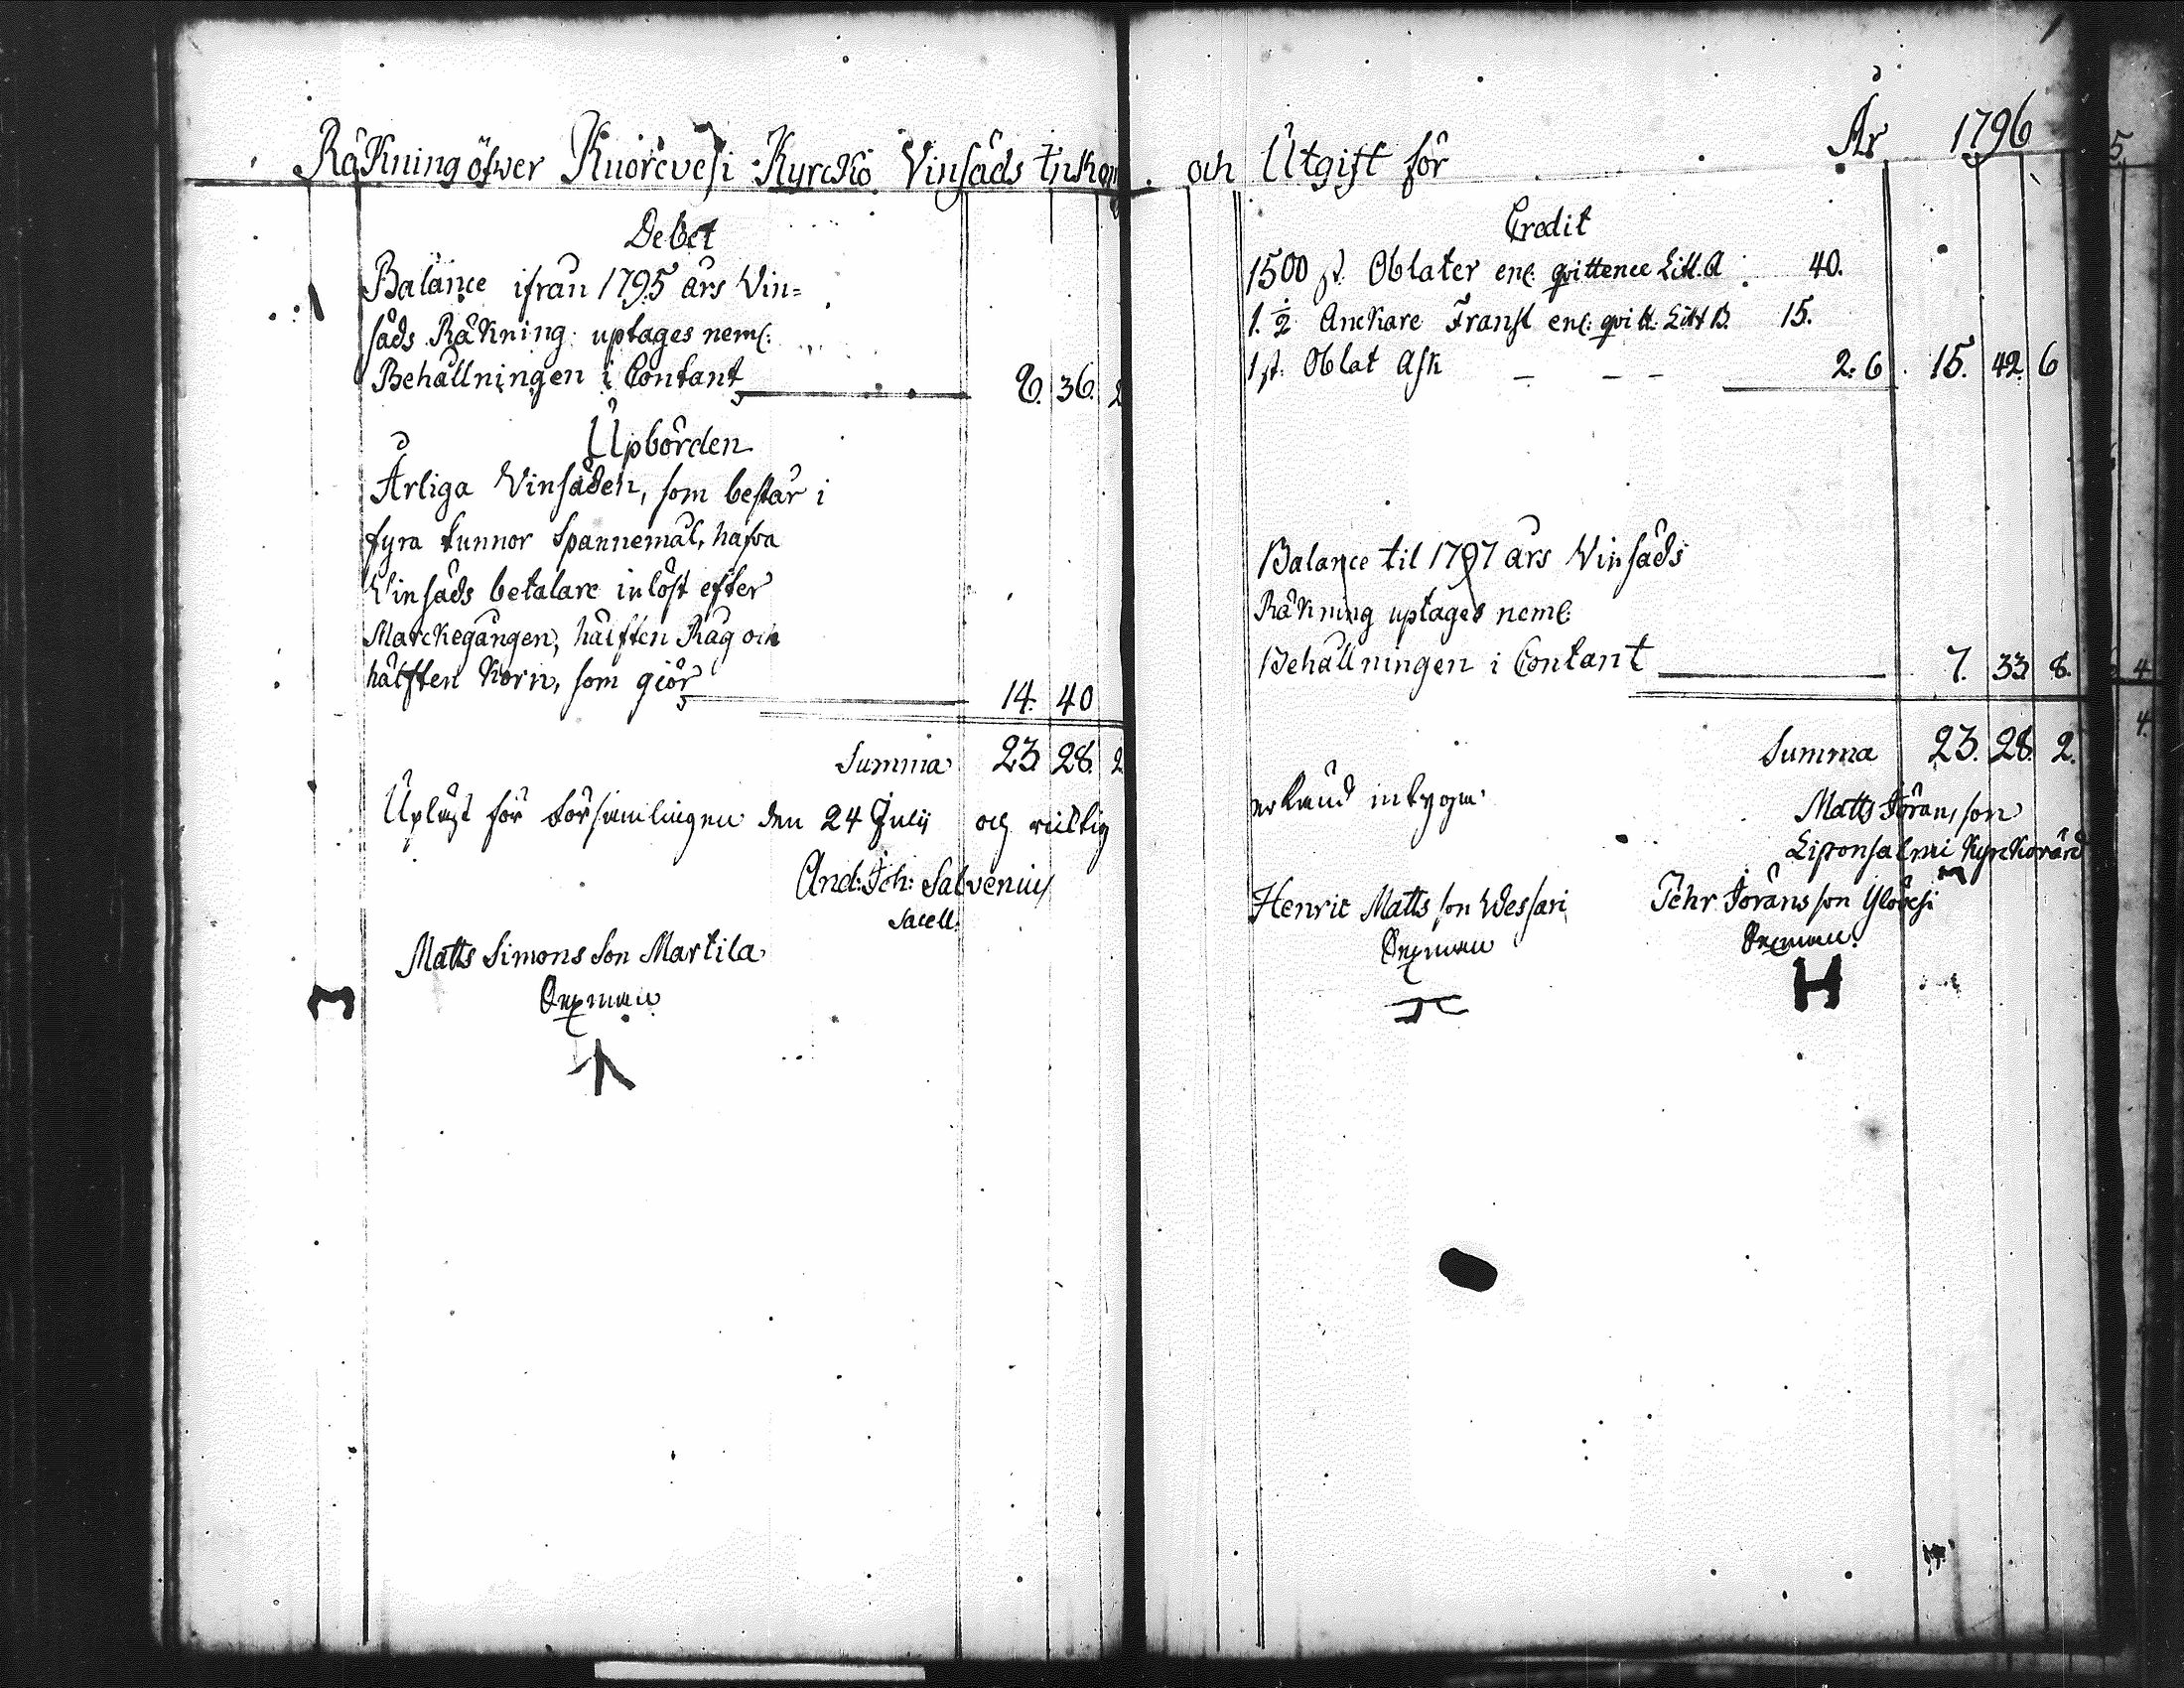 Räkning öfwer Kuorevesi Kyrcko Vinsäds Inkom
Debet
Balance ifrån 1795 års Vin=
säds Räkning uptages neml:
Behållningen i Contant 8. 36. 2
Upbörden
Årliga Vinsäden, som består i
fyra tunnor Spannemål, hafva
Vinsäds betalare inlöst efter
Marckegången, hälften Råg och
hälften Korn, som giör 14. 40
Summa 23 28. 2
Upläst för Församlingen den 24 Julii och riktig
And: Joh: Salvenius
Sacell:
Matts Simons Son Martila
Sexman
och Utgift för År 1796
Credit
1500 st. Oblater enl: qvittence Litt. A 40.
1. ½ Anckare Franst enl: qvitt: Litt B. 15.
1 st: Oblat Ask 2: 6 15. 42. 6
Balance til 1797 års Vinsäds
Räkning uptages neml:
Behållningen i Contant 7. 33 8.
Summa 23. 28. 2.
erkänd intygar
Matts Jörans son
Liponsalmi Kyrckovärd
Henric Matts son Wessari
Sexman
Jöran son Ylövesi
Sexman
H